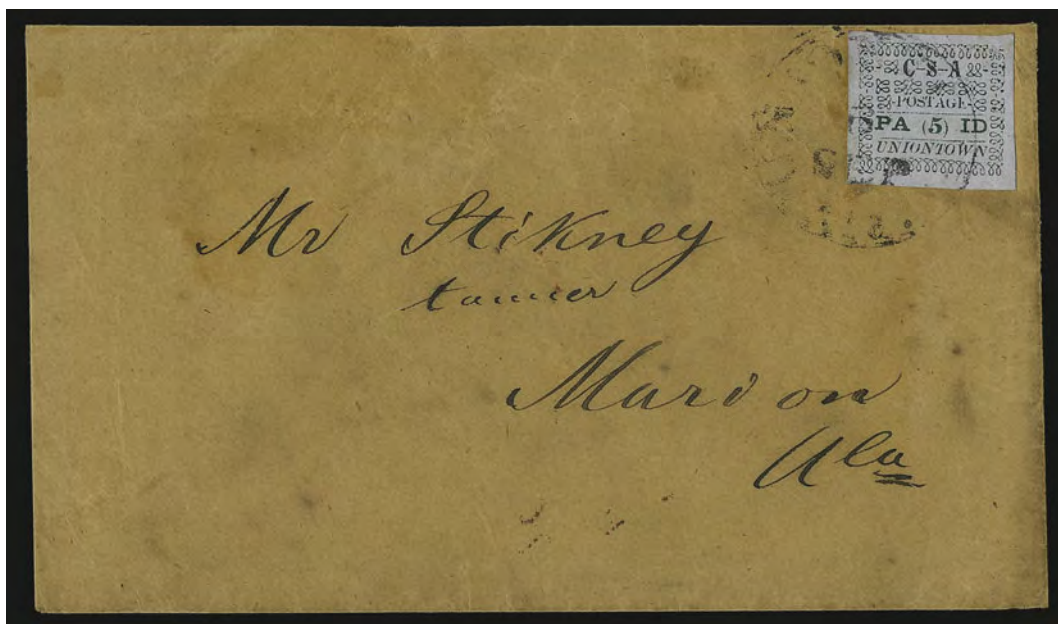 C-S-A
POSTAGE
PA (5) ID
UNIONTOWN
Mr Stikney
tanner
Marion
Ala